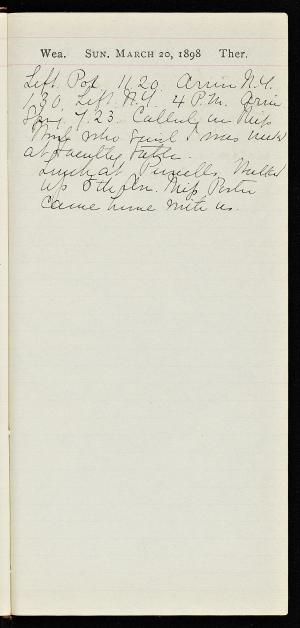 Wea. SUN. MARCH 20, 1898 Ther.
Left Pok 11.20. Arrive N.Y.
1.30. Left N.Y. 4 P.M. Arrive
7.23. Called on Miss
who said I was
at Faculty Table.
Lunch at Purcells. Walked
up 5th Ave. Miss Porter
came home with us.